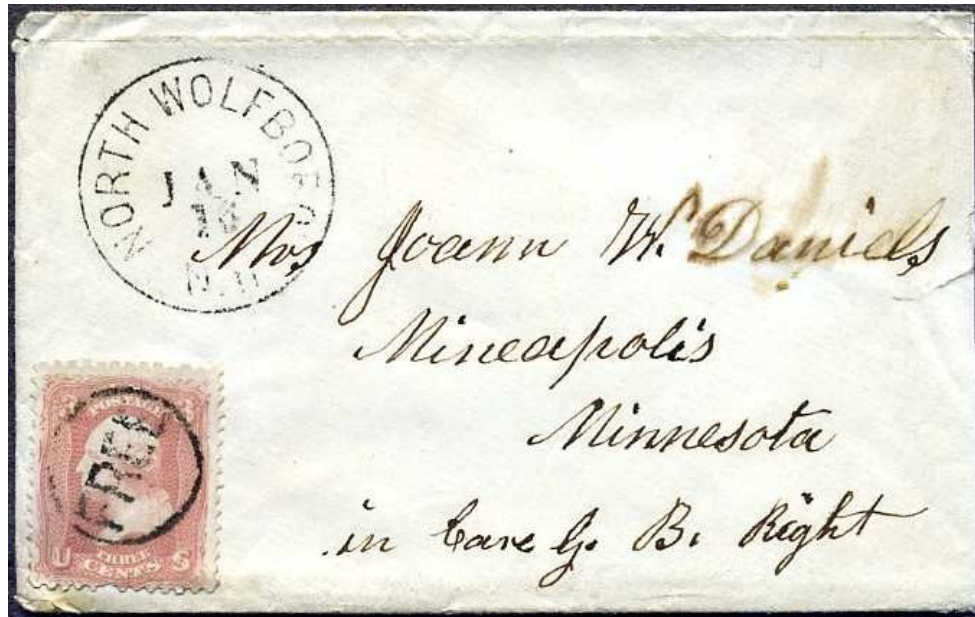 NORTH WOLFBORO
JAN
N.H.
Mrs Joann W. Daniels
Mineapolis
Minnesota
in Care G. B. Right
POSTAGE
FREE
U THREE S
CENTS